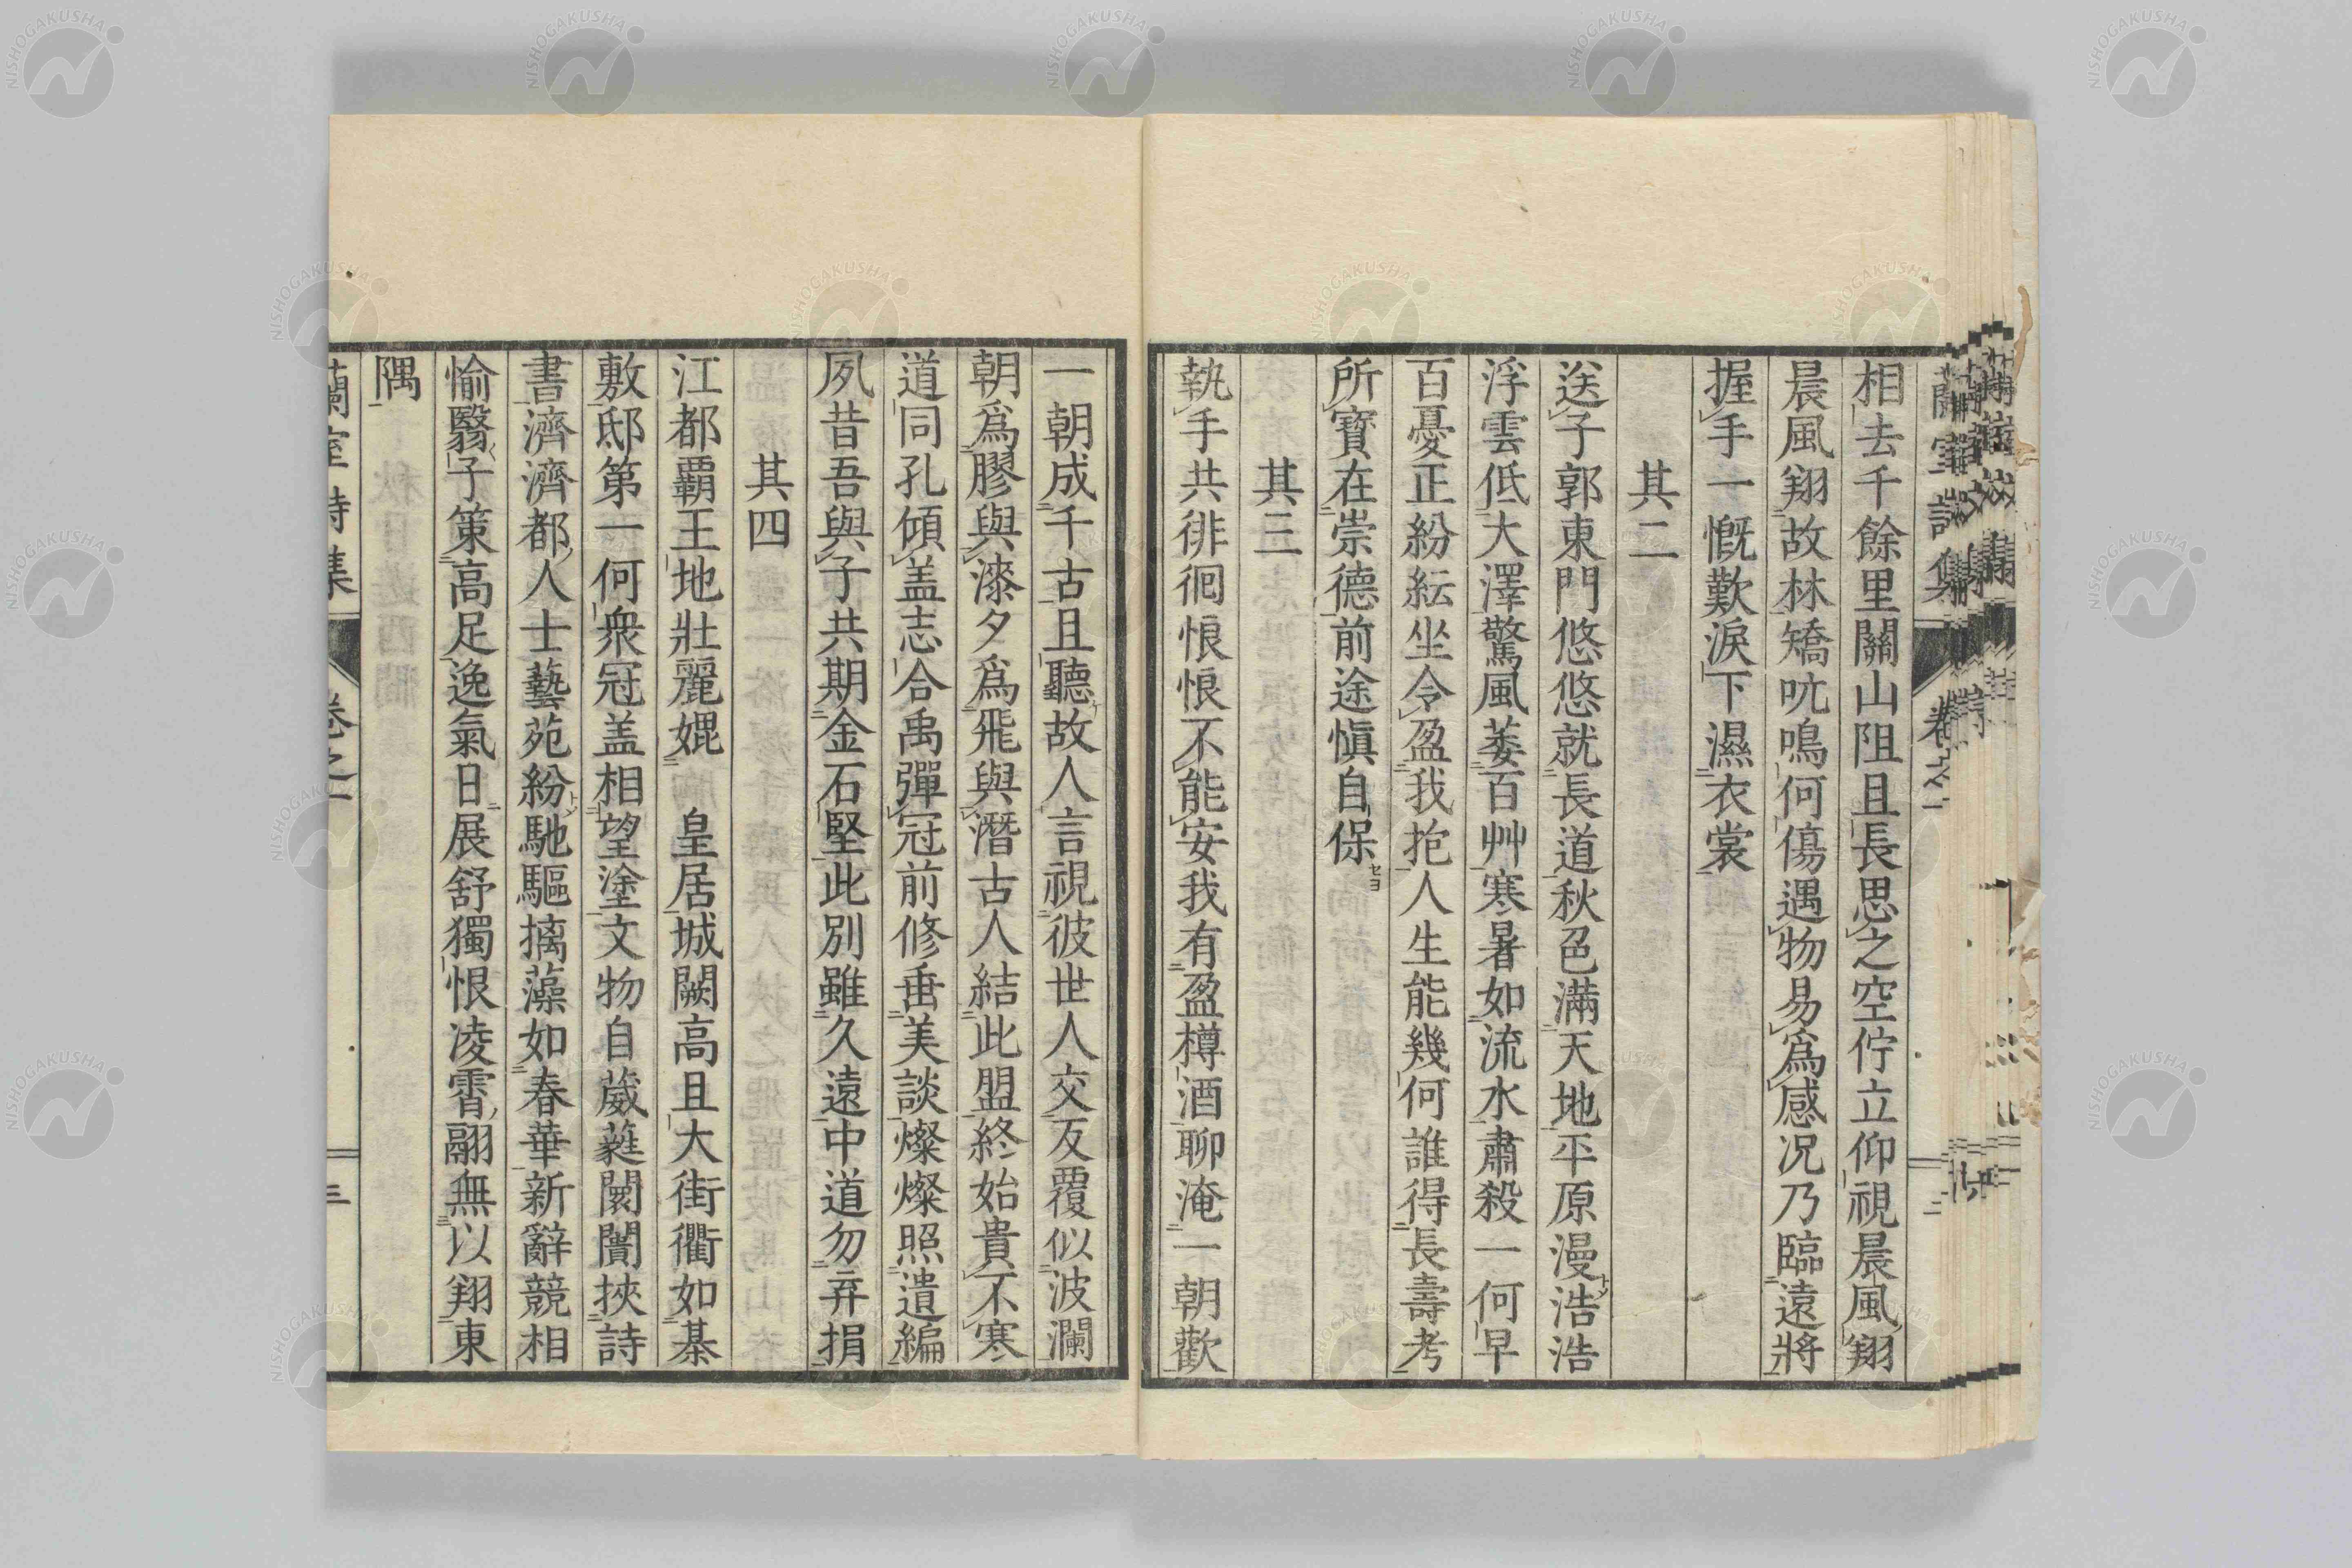 相去千餘里關山阻且長思之空佇立仰視晨風翔
晨風翔故林矯吭鳴何傷遇物易爲感況乃臨遠將
握手一慨歎淚下濕衣裳
其二
送子郭東門悠悠就長道秋色滿天地平原漫浩浩
浮雲低大澤驚風萎百艸寒暑如流水肅殺一何早
百憂正紛紜坐令盈我抱人生能幾何誰得長壽考
所寶在崇德前途愼自保
其三
執手共徘徊悢悢不能安我有盈樽酒聊淹一朝歡
一朝成千古且聽故人言視彼世人交反覆似波瀾
朝爲膠與漆夕爲飛與潛古人結此盟終始貴不寒
道同孔傾盖志合禹彈冠前修垂美談燦燦照遺編
夙昔吾與子共期金石堅此別雖久遠中道勿弃捐
其四
江都覇王地壯麗媲 皇居城闕高且大街衢如棊
敷邸第一何衆冠盖相望塗文物自葳蕤閎闇挾詩
書濟濟都人士藝苑紛馳驅摛藻如春華新辭競相
愉翳子策高足逸氣日展舒獨恨凌霄翮無以翔東
隅
蘭室詩集 卷之一 三